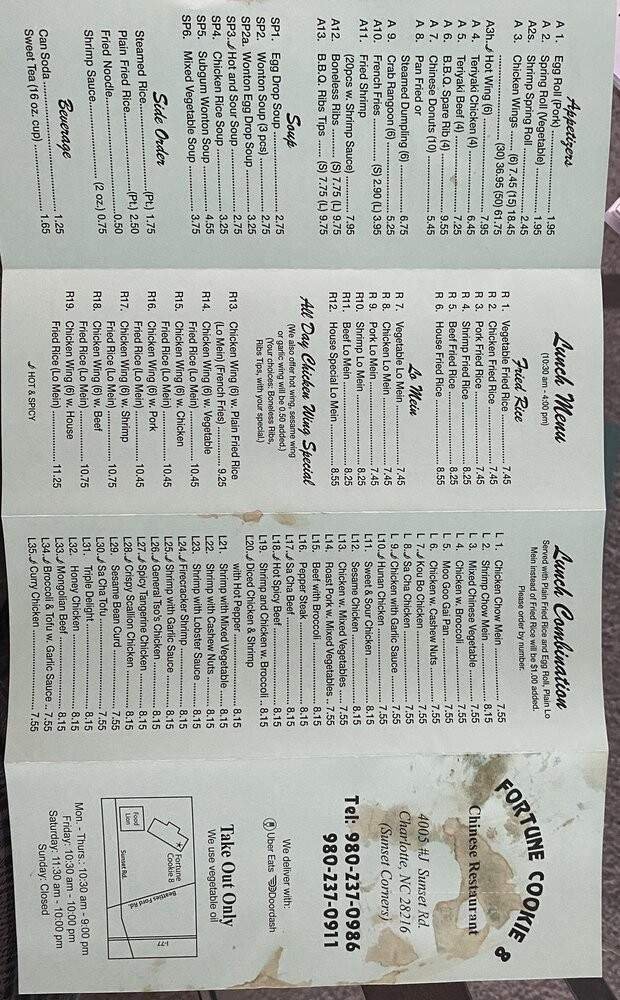 Appetizers
A 1. Egg Roll (Pork) 1.95
A 2. Spring Roll (Vegetable) 1.95
A2s. Shrimp Spring Roll 2.45
A 3. Chicken Wings (6) 7.45 (15) 18.45
(30) 36.95 (50) 61.75
A3h. Hot Wing (6) 7.95
A 4. Teriyaki Chicken (4) 6.45
A 5. Teriyaki Beef (4) 7.25
A 6. B.B.Q. Spare Rib (4) 9.55
A 7. Chinese Donuts (10) 5.45
A 8. Pan Fried or
Steamed Dumpling (6) 6.75
A 9. Crab Rangoon (6) 5.25
A10. French Fries (S) 2.90 (L) 3.95
A11. Fried Shrimp
(20pcs w. Shrimp Sauce) 7.95
A12. Boneless Ribs (S) 7.75 (L) 9.75
A13. B.B.Q. Ribs Tips (S) 7.75 (L) 9.75
Soup
SP1. Egg Drop Soup 2.75
SP2. Wonton Soup (3 pcs) 2.75
SP2a. Wonton Egg Drop Soup 3.25
SP3. Hot and Sour Soup 2.75
SP4. Chicken Rice Soup 3.25
SP5. Subgum Wonton Soup 4.55
SP6. Mixed Vegetable Soup 3.75
Side Order
Steamed Rice (Pt.) 1.75
Plain Fried Rice (Pt.) 2.50
Fried Noodle 0.50
Shrimp Sauce (2 oz.) 0.75
Beverage
Can Soda 1.25
Sweet Tea (16 oz. cup) 1.65
Lunch Menu
(10:30 am - 4:00 pm)
Fried Rice
R 1. Vegetable Fried Rice 7.45
R 2. Chicken Fried Rice 7.45
R 3. Pork Fried Rice 7.45
R 4. Shrimp Fried Rice 8.25
R 5. Beef Fried Rice 8.25
R 6. House Fried Rice 8.55
Lo Mein
R 7. Vegetable Lo Mein 7.45
R 8. Chicken Lo Mein 7.45
R 9. Pork Lo Mein 7.45
R10. Shrimp Lo Mein 8.25
R11. Beef Lo Mein 8.25
R12. House Special Lo Mein 8.55
All Day Chicken Wing Special
(We also offer hot wing, sesame wing
or garlic wing will be 0.50 added.)
(Your choices: Boneless Ribs,
Ribs Tips, with your special.)
R13. Chicken Wing (6) w. Plain Fried Rice
(Lo Mein) (French Fries) 9.25
R14. Chicken Wing (6) w. Vegetable
Fried Rice (Lo Mein) 10.45
R15. Chicken Wing (6) w. Chicken
Fried Rice (Lo Mein) 10.45
R16. Chicken Wing (6) w. Pork
Fried Rice (Lo Mein) 10.45
R17. Chicken Wing (6) w. Shrimp
Fried Rice (Lo Mein) 10.75
R18. Chicken Wing (6) w. Beef
Fried Rice (Lo Mein) 10.75
R19. Chicken Wing (6) w. House
Fried Rice (Lo Mein) 11.25
HOT & SPICY
Lunch Combination
Served with Plain Fried Rice and Egg Roll, Plain Lo
Mein instead of Fried Rice will be $1.00 added.
Please order by number.
L 1. Chicken Chow Mein 7.55
L 2. Shrimp Chow Mein 8.15
L 3. Mixed Chinese Vegetable 7.55
L 4. Chicken w. Broccoli 7.55
L 5. Moo Goo Gai Pan 7.55
L 6. Chicken w. Cashew Nuts 7.55
L 7. Kou Bo Chicken 7.55
L 8. Sa Cha Chicken 7.55
L 9. Chicken with Garlic Sauce 7.55
L10. Hunan Chicken 7.55
L11. Sweet & Sour Chicken 7.55
L12. Sesame Chicken 8.15
L13. Chicken w. Mixed Vegetables 7.55
L14. Roast Pork w. Mixed Vegetables 7.55
L15. Beef with Broccoli 8.15
L16. Pepper Steak 8.15
L17. Sa Cha Beef 8.15
L18. Hot Spicy Beef 8.15
L19. Shrimp and Chicken w. Broccoli 8.15
L20. Diced Chicken & Shrimp
with Hot Pepper 8.15
L21. Shrimp with Mixed Vegetable 8.15
L22. Shrimp with Cashew Nuts 8.15
L23. Shrimp with Lobster Sauce 8.15
L24. Firecracker Shrimp 8.15
L25. Shrimp with Garlic Sauce 8.15
L26. General Tso's Chicken 8.15
L27. Spicy Tangerine Chicken 8.15
L28. Crispy Scallion Chicken 8.15
L29. Sesame Bean Curd 7.55
L30. Sa Cha Tofu 7.55
L31. Triple Delight 8.15
L32. Honey Chicken 8.15
L33. Mongolian Beef 8.15
L34. Broccoli & Tofu w. Garlic Sauce 7.55
L35. Curry Chicken 7.55
FORTUNE COOKIE 8
Chinese Restaurant
4005 #J Sunset Rd.
Charlotte, NC 28216
(Sunset Corners)
Tel: 980-237-0986
980-237-0911
We deliver with:
Uber Eats Doordash
Take Out Only
We use vegetable oil
Fortune
Cookie 8
Food
Lion
Sunset Rd.
Beatties Ford Rd.
I-77
Mon. - Thurs.: 10:30 am - 9:00 pm
Friday: 10:30 am - 10:00 pm
Saturday: 11:30 am - 10:00 pm
Sunday: Closed